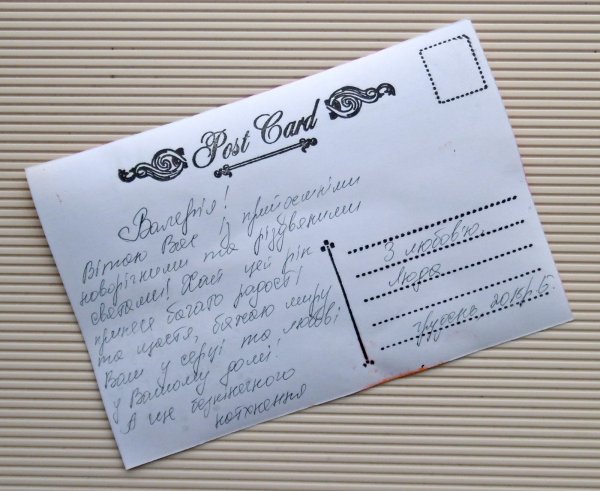 Post Card
Валерія!
Вітаю Вас із прийдешніми
новорічними та різдвяними
святами! Хай цей рік
принесе багато радості
та щастя, бажаю миру
Вам у серці та любові
у Вашому домі!
А ще безкінечного
натхнення
З любов'ю,
Люда
грудень 2015р.